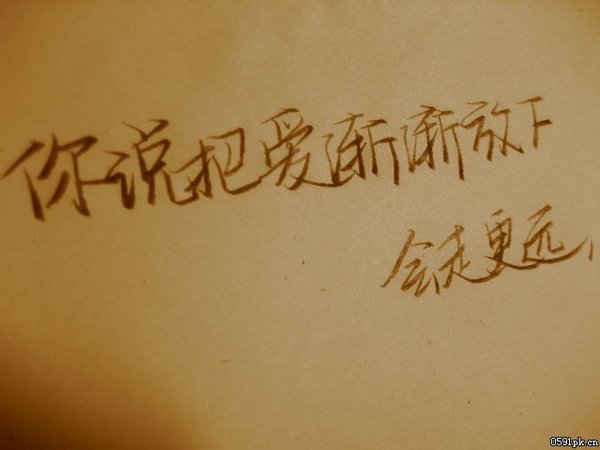 你说把爱渐渐放下
会走更远,
0591pk.cn